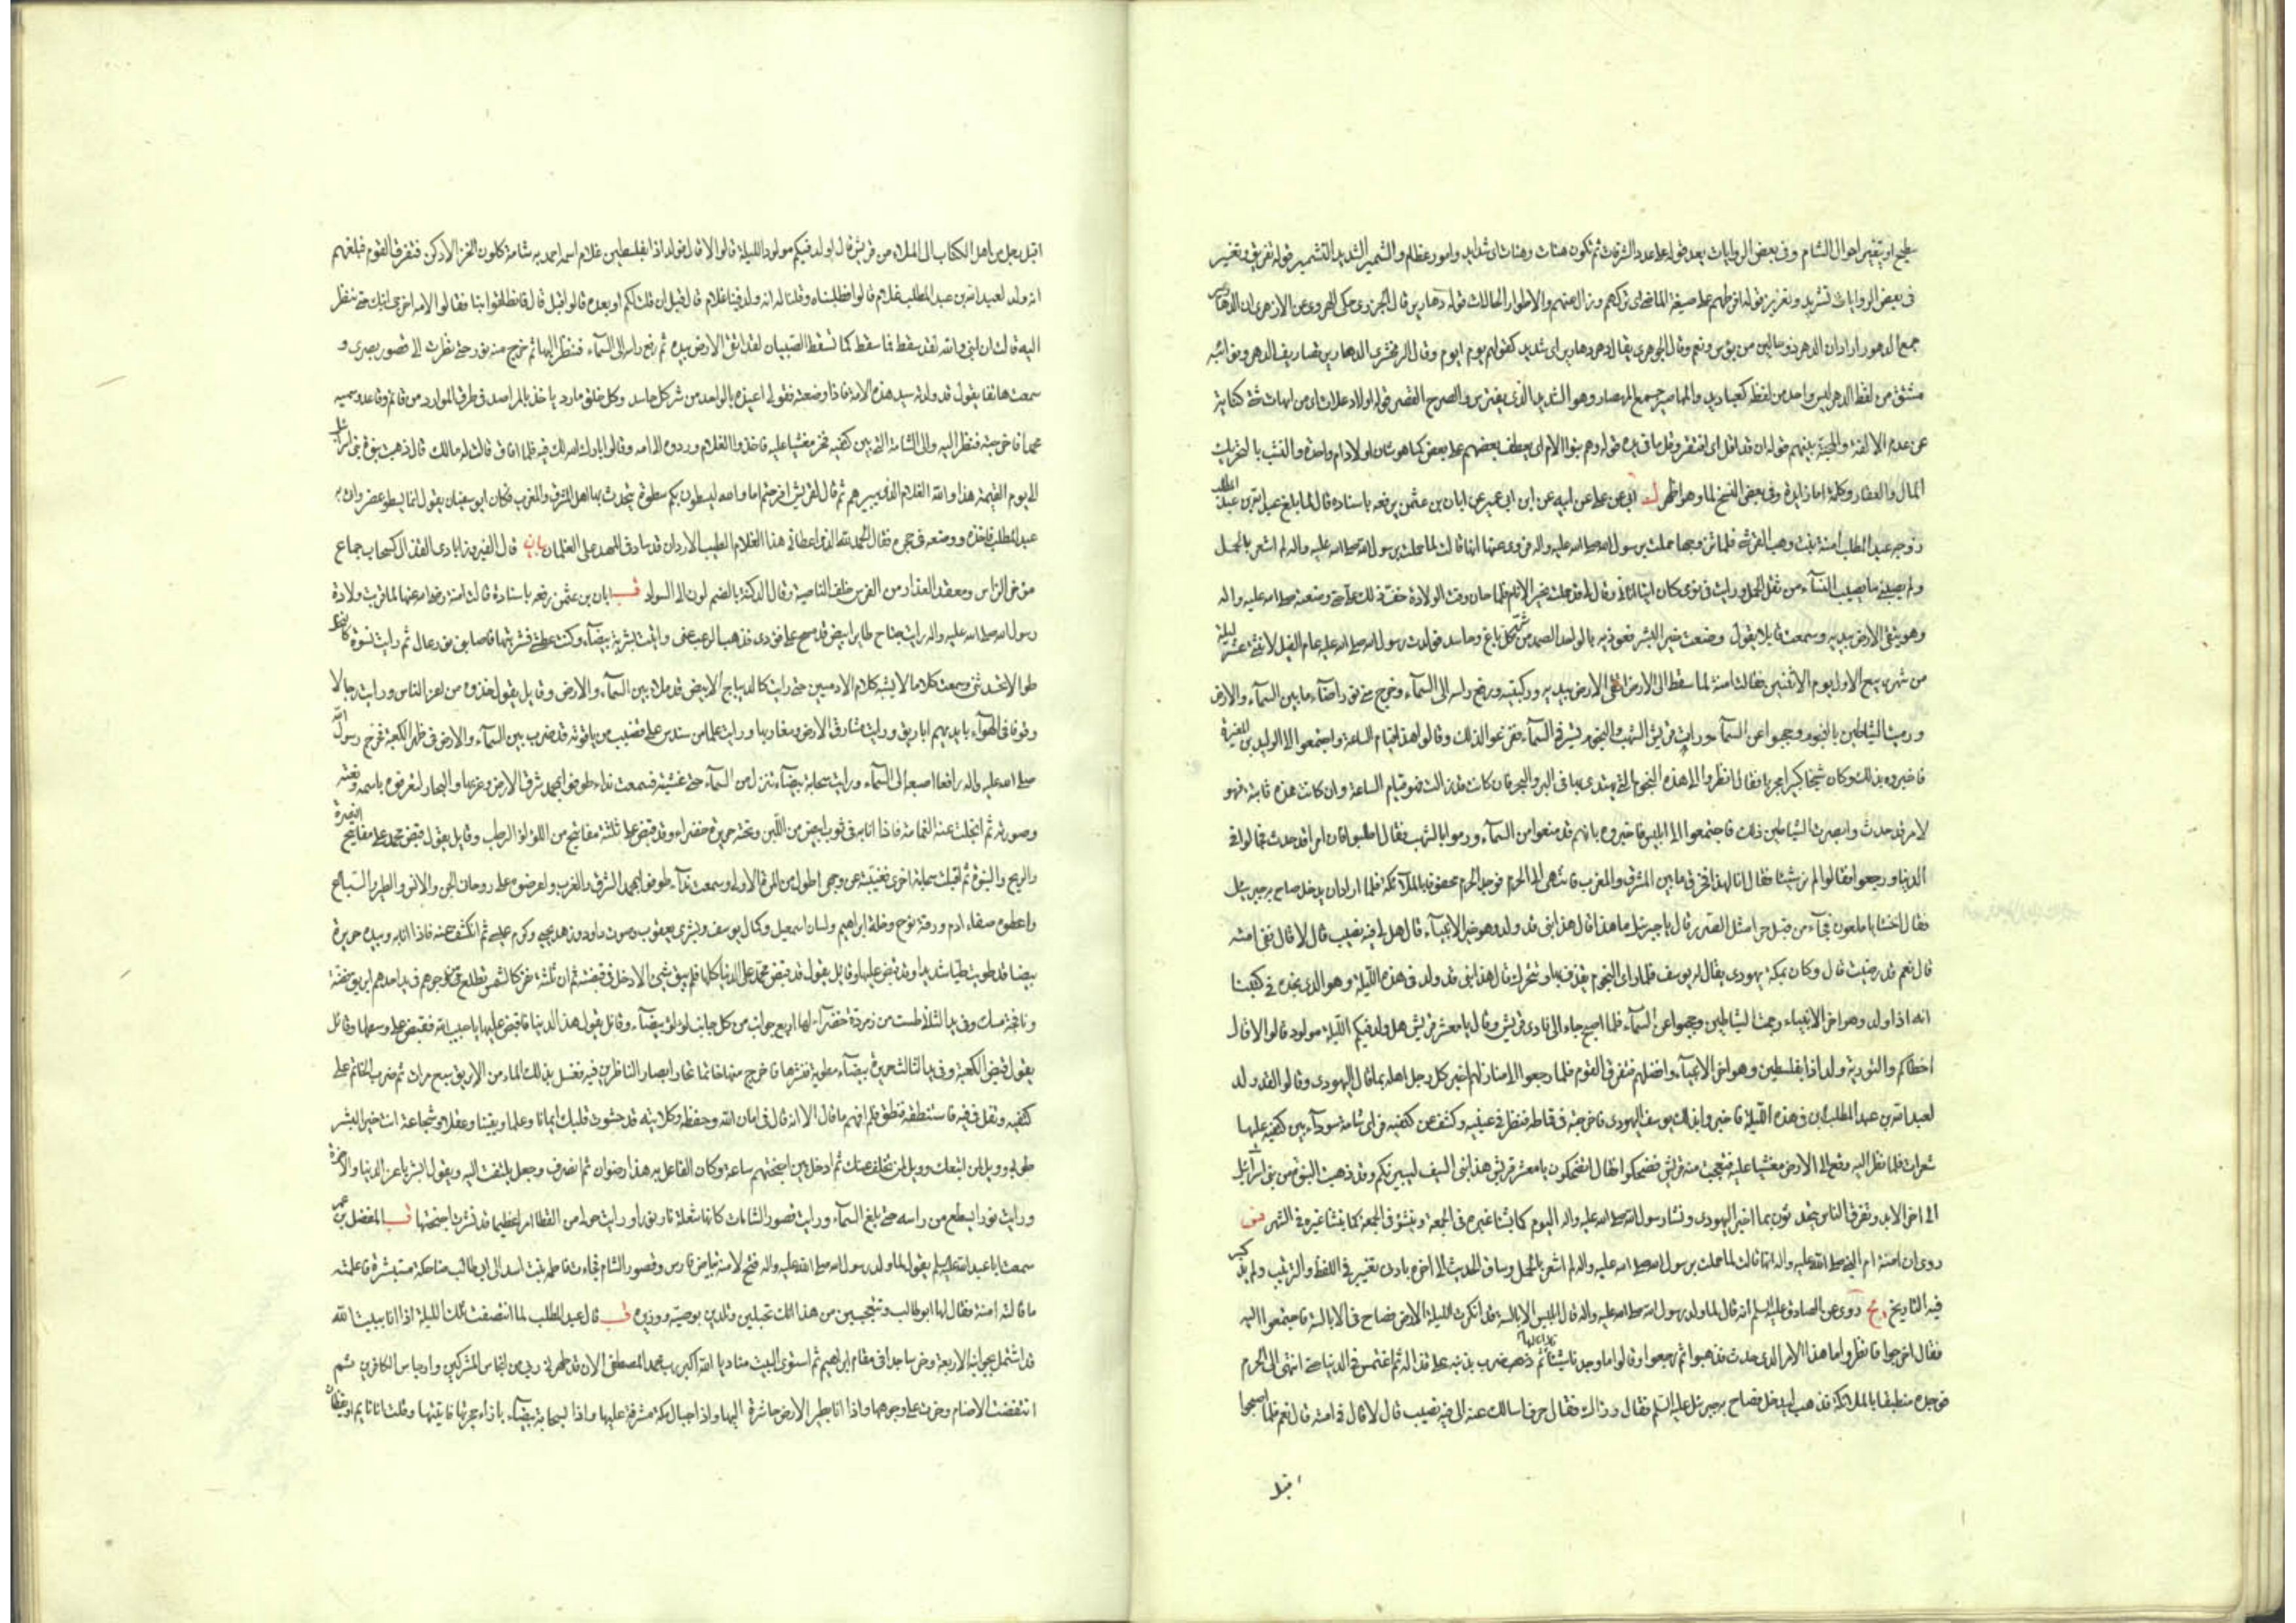 سطيح او بتغير احوال الشام وفي بعض الروايات بعد قوله على عدد الشرفات ثم تكون هنات وهنات اي شدايد وامور عظام والشمير الشديد التشمير قوله تفريق وتغيير
في بعض الروايات تشريد وتغرير قوله افرطهم على صيغة الماضي اي تركهم وزال عنهم والاطوار الحالات قوله دهارير قال الجزري حكى الهروي عن الازهري ان الدهارير
جمع الدهور اراد ان الدهر ذو حالين من بؤس ونعم وقال الجوهري يقال دهر دهارير اي شديد كقولهم يوم ايوم وقال الزمخشري الدهارير تصاريف الدهر ونوائبه
مشتق من لفظ الدهر ليس واحد من لفظه كعباديد والمهاصير جمع المهصار وهو الشديد الذي يفترس والصرح القصر قوله اولاد علات اي من امهات شتى كناية
عن عدم الالفة والمحبة بينهم قوله ان قد اقل اي افتقر وقل ما في يده قوله وهم بنوا الام اي يعطف بعضهم على بعض كما هو شان اولاد ام واحدة والنشب بالتحريك
المال والعقار وكلمة اما زايدة وفي بعض النسخ لما وهو اظهر ك ابي عن علي عن ابيه عن ابن ابي عمير عن ابان بن عثمن يرفعه باسناده قال لما بلغ عبد الله بن عبد المطلب
زوجه عبد المطلب امنة بنت وهب الزهري فلما تزوجها حملت برسول الله صلى الله عليه واله فروي عنها انها قالت لما حملت برسول الله صلى الله عليه واله لم اشعر بالحمل
ولم يصبني ما يصيب النساء من ثقل الحمل ورايت في نومي كان اتيا اتاني وقال لي قد حملت بخير الانام فلما حان وقت الولادة خف ذلك علي حتى وضعته صلى الله عليه واله
وهو يتقي الارض بيديه وسمعت قايلا يقول وضعت خير البشر فعوذيه بالواحد الصمد من شر كل باغ وحاسد فولدت رسول الله صلى الله عليه عام الفيل لاثنتي عشرة ليلة
من شهر ربيع الاول يوم الاثنين فقالت امنة لما سقط الى الارض اتقى الارض بيديه وركبتيه ورفع راسه الى السماء وخرج مني نور اضاء ما بين السماء والارض
ورميت الشياطين بالنجوم وحجبوا عن السماء ورات قريش الشهب والنجوم تسير في السماء ففزعوا لذلك وقالوا هذا قيام الساعة واجتمعوا الى الوليد بن المغيرة
فاخبروه بذلك وكان شيخا كبيرا مجربا فقال انظروا الى هذه النجوم التي يهتدى بها في البر والبحر فان كانت قد زالت فهو قيام الساعة وان كانت هذه ثابتة فهو
لامر قد حدث وابصرت الشياطين ذلك فاجتمعوا الى ابليس فاخبروه بانهم قد منعوا من السماء ورموا بالشهب فقال اطلبوا فان امرا قد حدث فجالوا في
الدنيا ورجعوا فقالوا لم نر شيئا فقال انا لهذا فخرق ما بين المشرق والمغرب فانتهى الى الحرم فوجد الحرم محفوفا بالملائكة فلما اراد ان يدخل صاح به جبرئيل
فقال اخسا يا ملعون فجاء من قبل حرا مثل الصر قال يا جبرئيل ما هذا قال هذا نبي قد ولد وهو خير الانبياء قال هل لي فيه نصيب قال لا قال ففي امته
قال نعم قد رضيت قال وكان بمكة يهودي يقال له يوسف فلما راى النجوم يقذف بها وتتحرك قال هذا نبي قد ولد في هذه الليلة وهو الذي نجده في كتبنا
انه اذا ولد وهو اخر الانبياء رجمت الشياطين وحجبوا عن السماء فلما اصبح جاء الى نادي قريش وقال يا معشر قريش هل ولد فيكم الليلة مولود قالوا لا قال
اخطاكم والتورية ولد اذا بفلسطين وهو اخر الانبياء وافضلهم فتفرق القوم فلما رجعوا الى منازلهم اخبر كل رجل اهله بما قال اليهودي وقالوا لقد ولد
لعبد الله بن عبد المطلب ابن في هذه الليلة فاخبروا بذلك يوسف اليهودي فاخرجته في قماطه فنظر في عينيه وكشف عن كتفيه فراى شامة سوداء بين كتفيه عليها
شعرات فلما نظر اليه وقع الى الارض مغشيا عليه فتعجبت منه قريش فضحكوا فقال اتضحكون يا معشر قريش هذا نبي السيف ليبيرنكم وقد ذهبت النبوة من بني اسرائيل
الى اخر الابد وتفرق الناس يتحدثون بما اخبر اليهودي ونشا رسول الله صلى الله عليه واله اليوم كما ينشا غيره في الجمعة وينشؤ في الجمعة كما ينشا غيره في الشهر
روى ان امنة ام النبي صلى الله عليه واله انها قالت لما حملت برسول الله صلى الله عليه واله لم اشعر بالحمل وساق الحديث الى اخره بادنى تغيير في اللفظ والترتيب ولم يذكر
فيه التاريخ يج روى عن الصادق عليه السلم انه قال لما ولد رسول الله صلى الله عليه واله قال ابليس الابالسة قد انكرت الليلة الارض فصاح في الابالسة فاجتمعوا اليه
فقال اخرجوا فانظروا ما هذا الامر الذي حدث فذهبوا ثم رجعوا وقالوا ما وجدنا شيئا ثم ذهب ضرب بذنبه على قذاله ثم اغتمس في الدنيا حتى انتهى الى الحرم
فوجده منطبقا بالملائكة فذهب ليدخل فصاح به جبرئيل عليه السلم فقال وراك فقال حرف اسالك عنه الي فيه نصيب قال لا قال في امته قال نعم فلما اصبحوا
اقبل
اقبل رجل من اهل الكتاب الى الملاء من قريش قال اولد فيكم مولود الليلة قالوا لا قال فولد اذا بفلسطين غلام اسمه احمد به شامة كلون الخز الادكن فتفرق القوم فبلغهم
انه ولد لعبد الله بن عبد المطلب غلام قالوا فطلبناه وقلنا له انه ولد فينا غلام قال قبل ان قلت لكم او بعده قالوا قبل قال فانطلقوا بنا فقالوا لامه اخرجي ابنك حتى ننظر
اليه قالت ان ابني والله لقد سقط فما سقط كما تسقط الصبيان لقد اتقى الارض بيده ثم رفع راسه الى السماء فنظر اليها ثم خرج منه نور حتى نظرت الى قصور بصرى و
سمعت هاتفا يقول قد ولدت سيد هذه الامة فاذا وضعته فقولي اعيذه بالواحد من شر كل حاسد وكل خلق مارد ياخذ بالمراصد في طرق الموارد من قائم وقاعد وسميه
محمدا فاخرجته فنظر اليه والى الشامة التي بين كتفيه فخر مغشيا عليه فاخذوا الغلام وردوه الى امه وقالوا بارك الله لك فيه فلما افاق قالت له مالك قال ذهبت نبوة بني اسرائيل
الى يوم القيمة هذا والله الغلام الذي يبيرهم ثم قال لقريش افرحتم اما والله ليسطون بكم سطوة يتحدث بها اهل المشرق والمغرب فكان ابو سفيان يقول انما يسطو بمضر واتي به
عبد المطلب فاخذه ووضعه في حجره فقال الحمد لله الذي اعطاني هذا الغلام الطيب الاردان قد ساد في المهد على الغلمان بيان قال الفيروزابادي القذال كسحاب جماع
مؤخر الراس ومعقد العذار من الفرس خلف الناصية وقال الدكنة بالضم لون الى السواد قب ابان بن عثمن رفعه باسناده قالت امنة رضي الله عنها لما قربت ولادة
رسول الله صلى الله عليه واله رايت جناح طاير ابيض قد مسح على فؤادي فذهب الرعب عني واتيت بشربة بيضاء وكنت عطشى فشربتها فاصابني نور عال ثم رايت نسوة كالنخل
طوالا تحدثني وسمعت كلاما لا يشبه كلام الادميين حتى رايت كالديباج الابيض قد ملا بين السماء والارض وقايل يقول خذوه من اعز الناس ورايت رجالا
وقوفا في الهواء بايديهم اباريق ورايت مشارق الارض ومغاربها ورايت علما من سندس على قضيب من ياقوتة قد ضرب بين السماء والارض في ظهر الكعبة فخرج رسول الله
صلى الله عليه واله رافعا اصبعه الى السماء ورايت سحابة بيضاء تنزل من السماء حتى غشيته فسمعت نداء طوفوا بمحمد شرق الارض وغربها والبحار لتعرفوه باسمه ونعته
وصورته ثم انجلت عنه الغمامة فاذا انا به في ثوب ابيض من اللبن وتحته حريرة خضراء وقد قبض على ثلثة مفاتيح من اللؤلؤ الرطب وقايل يقول قبض محمد على مفاتيح النصرة
والريح والنبوة ثم اقبلت سحابة اخرى فغيبته عن وجهي اطول من المرة الاولى وسمعت نداء طوفوا بمحمد الشرق والغرب واعرضوه على روحاني الجن والانس والطير والسباع
واعطوه صفاء ادم ورقة نوح وخلة ابراهيم ولسان اسمعيل وكمال يوسف وبشرى يعقوب وصوت داود وزهد يحيى وكرم عيسى ثم انكشف عنه فاذا انا به وبيده حريرة
بيضا قد طويت طيا شديدا وقد قبض عليها وقايل يقول قد قبض محمد على الدنيا كلها فلم يبق شيئ الا دخل في قبضته ثم ان ثلثة نفر كالشمس تطلع من وجوههم في يد احدهم ابريق فضة
ونافجة مسك وفي يد الثاني طست من زمردة خضراء لها اربع جوانب من كل جانب لؤلؤة بيضاء وقائل يقول هذه الدنيا فاقبض عليها يا حبيب الله فقبض على وسطها وقائل
يقول قبض الكعبة وفي يد الثالث حريرة بيضاء مطوية فنشرها فاخرج منها خاتما تحار ابصار الناظرين فيه فغسل بذلك الماء من الابريق سبع مرات ثم ضرب الخاتم على
كتفيه وتفل في فيه فاستنطقه فنطق فلم افهم ما قال الا انه قال في امان الله وحفظه وكلائته قد حشوت قلبك ايمانا وعلما ويقينا وعقلا وشجاعة انت خير البشر
طوبى لمن اتبعك وويل لمن تخلف عنك ثم ادخل بين اجنحتهم ساعة وكان الفاعل به هذا رضوان ثم انصرف وجعل يلتفت اليه ويقول ابشر يا عز الدنيا والاخرة
ورايت نورا يسطع من راسه حتى بلغ السماء ورايت قصور الشامات كانها شعلة نار نورا ورايت حولي من القطا امرا عظيما قد نشرت اجنحتها قب المفضل بن عمر
سمعت ابا عبد الله عليه السلم يقول لما ولد رسول الله صلى الله عليه واله فتح لامنة بياض فارس وقصور الشام فجاءت فاطمة بنت اسد الى ابي طالب ضاحكة مستبشرة فاعلمته
ما قالته امنة فقال لها ابو طالب وتتعجبين من هذا انك تحبلين وتلدين بوصيه ووزيره قب قال عبد المطلب لما انتصفت تلك الليلة اذا انا ببيت الله
قد اشتمل بجوانبه الاربعة وخر ساجدا في مقام ابراهيم ثم استوى البيت مناديا الله اكبر رب محمد المصطفى الان قد طهرني ربي من انجاس المشركين وارجاس الكافرين ثم
انتفضت الاصنام وخرت على وجوهها واذا انا بطير الارض حاشرة اليها واذا جبال مكة مشرفة عليها واذا بسحابة بيضاء بازاء حجرتها فاتيتها وقلت انا نايم او يقظان